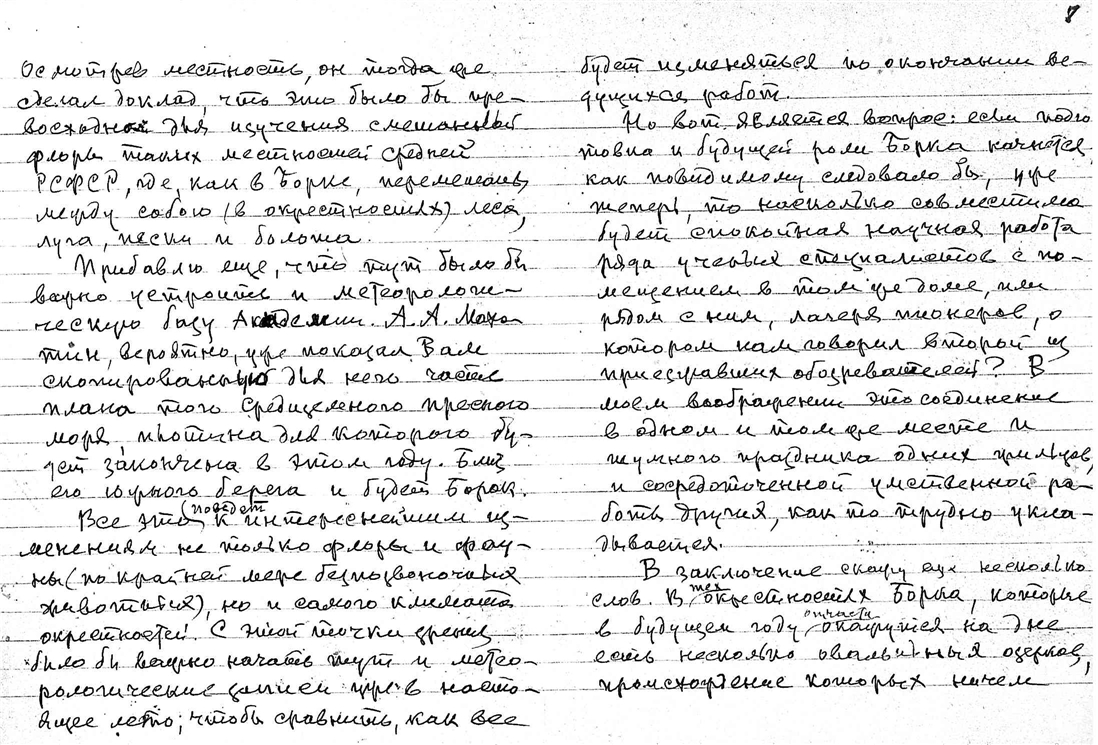 7
Осмотрев местность, он тогда же
сделал доклад, что это было бы пре-
восходно для изучения смешанной
флоры таких местностей средней
РСФСР, где, как в Борке, перемешаны
между собою (в окрестностях) леса,
луга, пески и болота.
Прибавлю еще, что тут было бы
важно устроить и метеорологи-
ческую базу Академии. А.А. Махо-
тин, вероятно, уже показал Вам
скопированную для него часть
плана того Средиземного пресного
моря, плотина для которого бу-
дет закончена в этом году. Близ
его южного берега и будет Борок.
Все это поведет к интереснейшим из-
менениям не только флоры и фау-
ны (по крайней мере безпозвоночных
животных), но и самого климата
окрестностей. С этой точки зрения
было бы важно начать тут и метео-
рологические записи уже в насто-
ящее лето, чтобы сравнить, как все
будет изменяться по окончании ве-
дущихся работ.
Но вот является вопрос: если подго
товка к будущей роли Борка начнется,
как повидимому следовало бы, уже
теперь, то насколько совместима
будет спокойная научная работа
ряда ученых специалистов с по-
мещением в том же доме, или
рядом с ним, лагеря пионеров, о
котором нам говорил второй из
приезжавших обозревателей? В
моем воображении это соединение
в одном и том же месте и
шумного праздника одних жильцов,
и сосредоточенной умственной ра-
боты других, как то трудно укла-
дывается.
В заключение скажу еще несколько
слов. В тех окрестностях Борка, которые
в будущем году отчасти окажутся на дне
есть несколько овальных озерков,
происхождение которых ничем